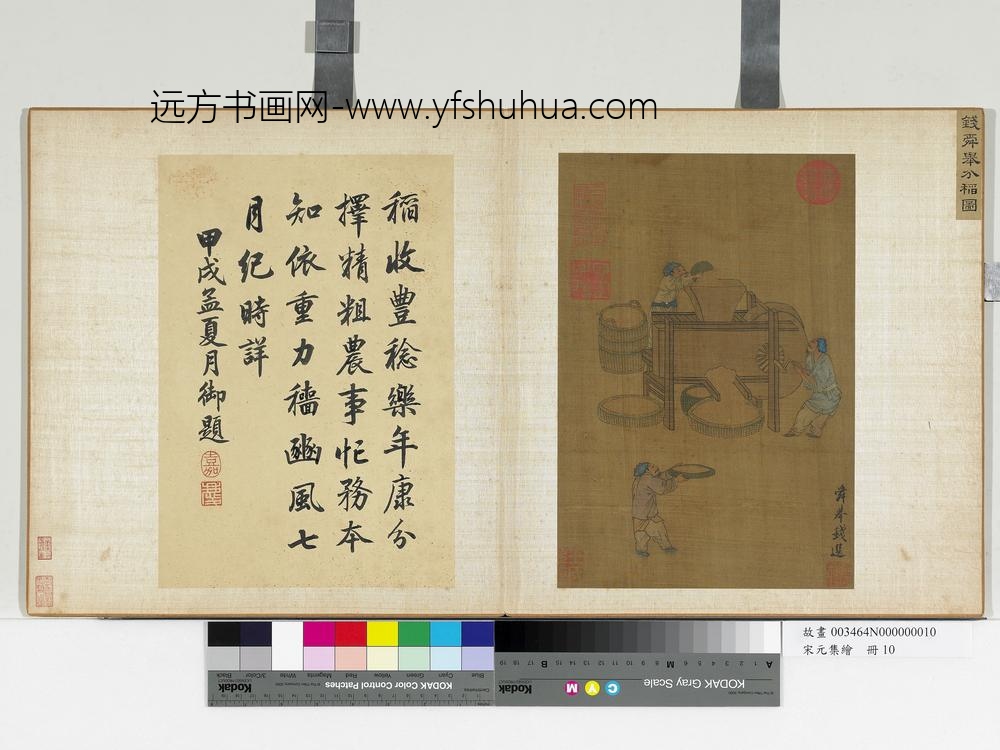 远方书画网-www.yfshuhua.com
錢舜舉分稻圖
稻收豐稔樂年康分
擇精粗農事忙務本
知依重力穡豳風七
月紀時詳
甲戌孟夏月御題
舜舉錢選
故畫 003464N000000010
宋元集繪 冊 10
KODAK Color Control Patches
Kodak
Blue
Cyan
Green
Yellow
Red
Magenta
White
3/Color
Black
KODAK Gray Scale
Kodak
C
Y
M
A 1 2 3 4 5 6 M 8 9 10 11 12 13 14 15 B 17 18 19